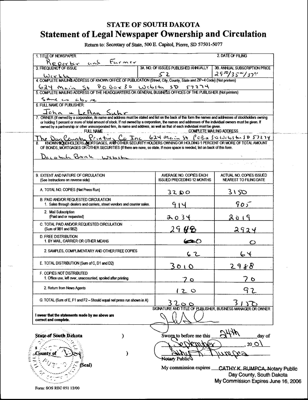 STATE OF SOUTH DAKOTA
Statement of Legal Newspaper Ownership and Circulation
Return to: Secretary of State, 500 E. Capitol, Pierre, SD 57501-5077
1. TITLE OF NEWSPAPER
2. DATE OF FILING
Reporter and Farmer
3. FREQUENCY OF ISSUE
3A. NO. OF ISSUES PUBLISHED ANNUALLY
3B. ANNUAL SUBSCRIPTION PRICE
Weekly
52
4. COMPLETE MAILING ADDRESS OF KNOWN OFFICE OF PUBLICATION (Street, City, County, State and ZIP+4 Code) (Not printers)
624 Main St PO Box 30 Webster SD 57274
5. COMPLETE MAILING ADDRESS OF THE HEADQUARTERS OR GENERAL BUSINESS OFFICES OF THE PUBLISHER (Not printers)
Same as above
6. FULL NAME OF PUBLISHER
John
7. OWNER (If owned by a corporation, its name and address must be stated and list on the back of this form the names and addresses of stockholders owning or holding 1 percent or more of total amount of stock. If not owned by a corporation, the names and addresses of the individual owners must be given. If owned by a partnership or other unincorporated firm, its name and address, as well as that of each individual must be given.
FULL NAME
COMPLETE MAILING ADDRESS
624 Main St Webster SD 57274
8. KNOWN BONDHOLDERS, MORTGAGES, AND OTHER SECURITY HOLDERS OWNING OR HOLDING 1 PERCENT OR MORE OF TOTAL AMOUNT OF BONDS, MORTGAGES OR OTHER SECURITIES (If there are none, so state. If more space is needed, list on back of this form.
Dacotah Bank Webster
9. EXTENT AND NATURE OF CIRCULATION
(See instructions on reverse side)
AVERAGE NO. COPIES EACH ISSUED PRECEDING 12 MONTHS
ACTUAL NO. COPIES ISSUED NEAREST TO FILING DATE
A. TOTAL NO. COPIES (Net Press Run)
3200
3150
B. PAID AND/OR REQUESTED CIRCULATION
1. Sales through dealers and carriers, street vendors and counter sales.
914
905
2. Mail Subscription
(Paid and or requested)
2034
2019
C. TOTAL PAID AND/OR REQUESTED CIRCULATION
(Sum of 9B1 and 9B2)
2948
2924
D. FREE DISTRIBUTION
1. BY MAIL, CARRIER OR OTHER MEANS
0
0
2. SAMPLES, COMPLIMENTARY AND OTHER FREE COPIES
62
64
E. TOTAL DISTRIBUTION (Sum of C, D1 and D2)
3010
2988
F. COPIES NOT DISTRIBUTED
1. Office use, left over, unaccounted, spoiled after printing
70
70
2. Return from News Agents
120
92
G. TOTAL (Sum of E, F1 and F2 – Should equal net press run shown in A)
3200
3150
SIGNATURE AND TITLE OF PUBLISHER, BUSINESS MANAGER OR OWNER
I swear that the statements made by me above are correct and complete.
State of South Dakota
Sworn to before me this 24th day of
County of Day
September 2001
(Seal)
Cathy K. Rumpca
Notary Public
My commission expires
CATHY K. RUMPCA, Notary Public
Day County, South Dakota
My Commission Expires June 16, 2006
Form: SOS REC 051 12/00